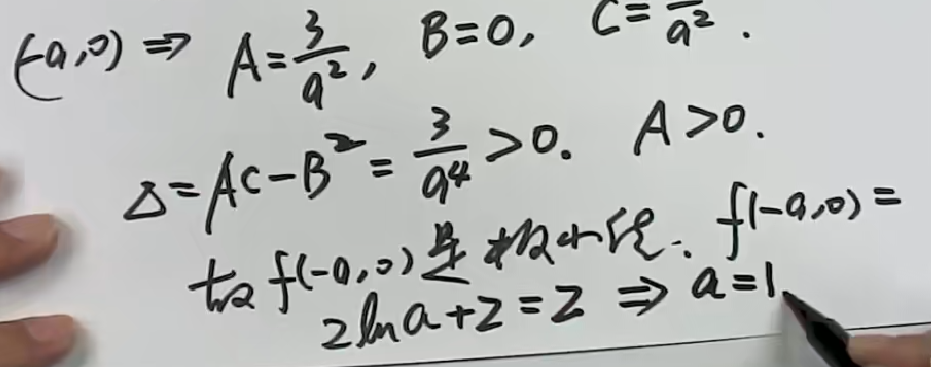 (-a,0) ⇒ A=3/a², B=0, C=/a².
Δ=AC-B²=3/a⁴>0. A>0.
故f(-a,0)是极小值. f(-a,0)=
2lna+2=2 ⇒ a=1